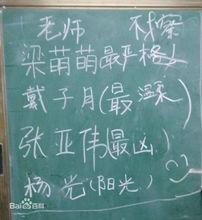 老师 不察
梁萌萌最严格
戴子月(最温柔
张亚伟(最凶)
杨光(阳光)
Bai百科